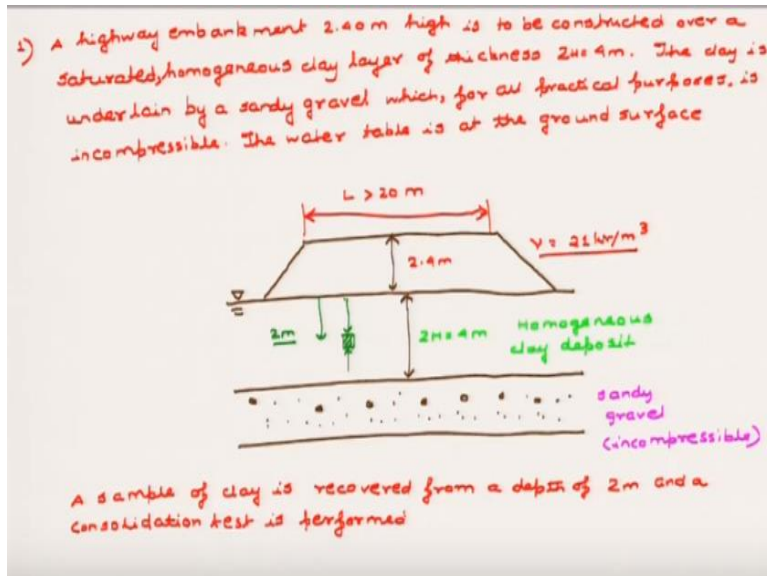 1) A highway embankment 2.40m high is to be constructed over a
saturated, homogeneous clay layer of thickness 2H=4m. The clay is
underlain by a sandy gravel which, for all practical purposes, is
incompressible. The water table is at the ground surface
L > 20 m
γ = 21 kN/m³
2.4m
2m
2H=4m
Homogeneous
clay deposit
sandy
gravel
(incompressible)
A sample of clay is recovered from a depth of 2m and a
consolidation test is performed